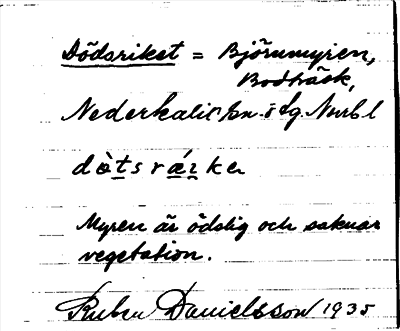 Dödsriket = Björnmyren,
Bodträsk,
Nederkalix sn. i lg. Nurbl
dòtsrǽɪke
Myren är ödslig och saknar
vegetation.
Ruben Danielsson 1935